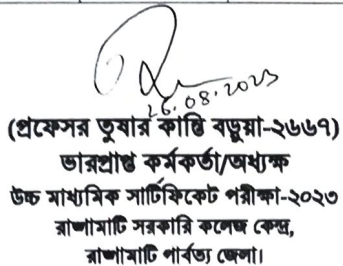 26.08.2023
(প্রফেসর তুষার কান্তি বড়ুয়া-২৬৬৭)
ভারপ্রাপ্ত কর্মকর্তা/অধ্যক্ষ
উচ্চ মাধ্যমিক সার্টিফিকেট পরীক্ষা-২০২৩
রাঙ্গামাটি সরকারি কলেজ কেন্দ্র,
রাঙ্গামাটি পার্বত্য জেলা।